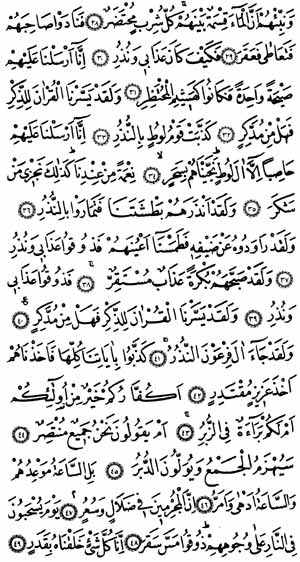 وَنَبِّئْهُمْ أَنَّ الْمَاءَ قِسْمَةٌ بَيْنَهُمْ كُلُّ شِرْبٍ مُحْتَضَرٌ ٢٨ فَنَادَوْا صَاحِبَهُمْ
فَتَعَاطَى فَعَقَرَ ٢٩ فَكَيْفَ كَانَ عَذَابِي وَنُذُرِ ٣٠ إِنَّا أَرْسَلْنَا عَلَيْهِمْ
صَيْحَةً وَاحِدَةً فَكَانُوا كَهَشِيمِ الْمُحْتَظِرِ ٣١ وَلَقَدْ يَسَّرْنَا الْقُرْآنَ لِلذِّكْرِ
فَهَلْ مِنْ مُدَّكِرٍ ٣٢ كَذَّبَتْ قَوْمُ لُوطٍ بِالنُّذُرِ ٣٣ إِنَّا أَرْسَلْنَا عَلَيْهِمْ
حَاصِبًا إِلَّا آلَ لُوطٍ نَجَّيْنَاهُمْ بِسَحَرٍ ٣٤ نِعْمَةً مِنْ عِنْدِنَا كَذَلِكَ نَجْزِي مَنْ
شَكَرَ ٣٥ وَلَقَدْ أَنْذَرَهُمْ بَطْشَتَنَا فَتَمَارَوْا بِالنُّذُرِ ٣٦
وَلَقَدْ رَاوَدُوهُ عَنْ ضَيْفِهِ فَطَمَسْنَا أَعْيُنَهُمْ فَذُوقُوا عَذَابِي وَنُذُرِ
٣٧ وَلَقَدْ صَبَّحَهُمْ بُكْرَةً عَذَابٌ مُسْتَقِرٌّ ٣٨ فَذُوقُوا عَذَابِي
وَنُذُرِ ٣٩ وَلَقَدْ يَسَّرْنَا الْقُرْآنَ لِلذِّكْرِ فَهَلْ مِنْ مُدَّكِرٍ ٤٠
وَلَقَدْ جَاءَ آلَ فِرْعَوْنَ النُّذُرُ ٤١ كَذَّبُوا بِآيَاتِنَا كُلِّهَا فَأَخَذْنَاهُمْ
أَخْذَ عَزِيزٍ مُقْتَدِرٍ ٤٢ أَكُفَّارُكُمْ خَيْرٌ مِنْ أُولَئِكُمْ
أَمْ لَكُمْ بَرَاءَةٌ فِي الزُّبُرِ ٤٣ أَمْ يَقُولُونَ نَحْنُ جَمِيعٌ مُنْتَصِرٌ ٤٤
سَيُهْزَمُ الْجَمْعُ وَيُوَلُّونَ الدُّبُرَ ٤٥ بَلِ السَّاعَةُ مَوْعِدُهُمْ
وَالسَّاعَةُ أَدْهَى وَأَمَرُّ ٤٦ إِنَّ الْمُجْرِمِينَ فِي ضَلَالٍ وَسُعُرٍ ٤٧ يَوْمَ يُسْحَبُونَ
فِي النَّارِ عَلَى وُجُوهِهِمْ ذُوقُوا مَسَّ سَقَرَ ٤٨ إِنَّا كُلَّ شَيْءٍ خَلَقْنَاهُ بِقَدَرٍ ٤٩